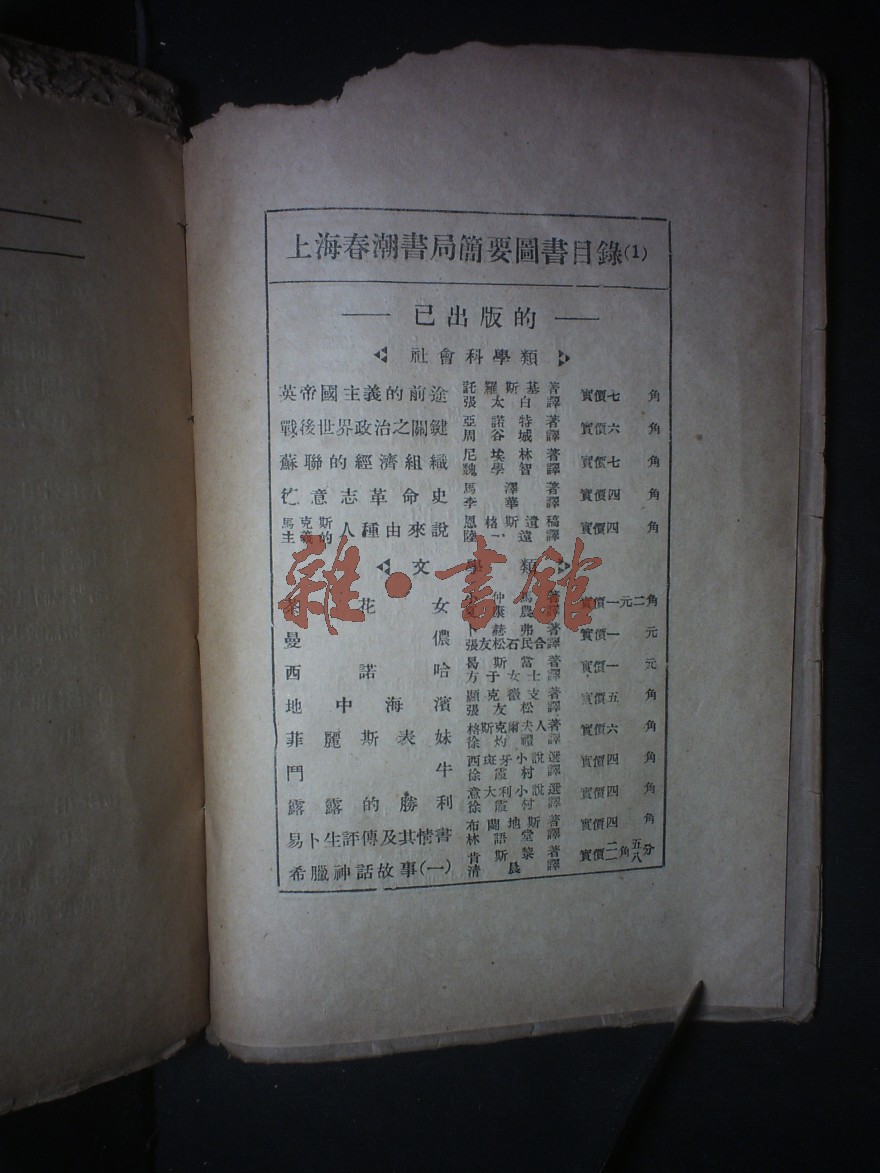 上海春潮書局簡要圖書目錄(1)
已出版的
社會科學類
英帝國主義的前途 託羅斯基著 張太白譯 實價七角
戰後世界政治之關鍵 亞諾特著 周谷城譯 實價六角
蘇聯的經濟組織 尼埃林著 魏學智譯 實價七角
意志革命史 馬澤著 李華譯 實價四角
馬克斯主義的人種由來說 恩格斯遺稿 陸一遠譯 實價四角
文學類
茶花女 小仲馬著 夏康農譯 實價一元二角
曼儂 卜赫弗著 張友松石民合譯 實價一元
西哈諾 曷斯當著 方于女士譯 實價一元
地中海濱 顯克微支著 張友松譯 實價五角
菲麗斯表妹 格斯克爾夫人著 徐灼禮譯 實價六角
鬥牛 西班牙小說選 徐霞村譯 實價四角
露露的勝利 意大利小說選 徐霞村譯 實價四角
易卜生評傳及其情書 布蘭地斯著 林語堂譯 實價四角
希臘神話故事(一) 肯斯黎著 清晨譯 實價二角五分
雜·書館